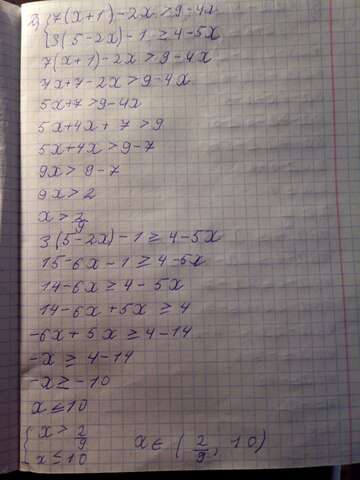 2) { 7(x+1)-2x>9-4x
{ 3(5-2x)-1≥4-5x
7(x+1)-2x>9-4x
7x+7-2x>9-4x
5x+7>9-4x
5x+4x+7>9
5x+4x>9-7
9x>9-7
9x>2
x>2/9
3(5-2x)-1≥4-5x
15-6x-1≥4-5x
14-6x≥4-5x
14-6x+5x≥4
-6x+5x≥4-14
-x≥4-14
-x≥-10
x≤10
{ x>2/9
{ x≤10 x∈(2/9, 10)